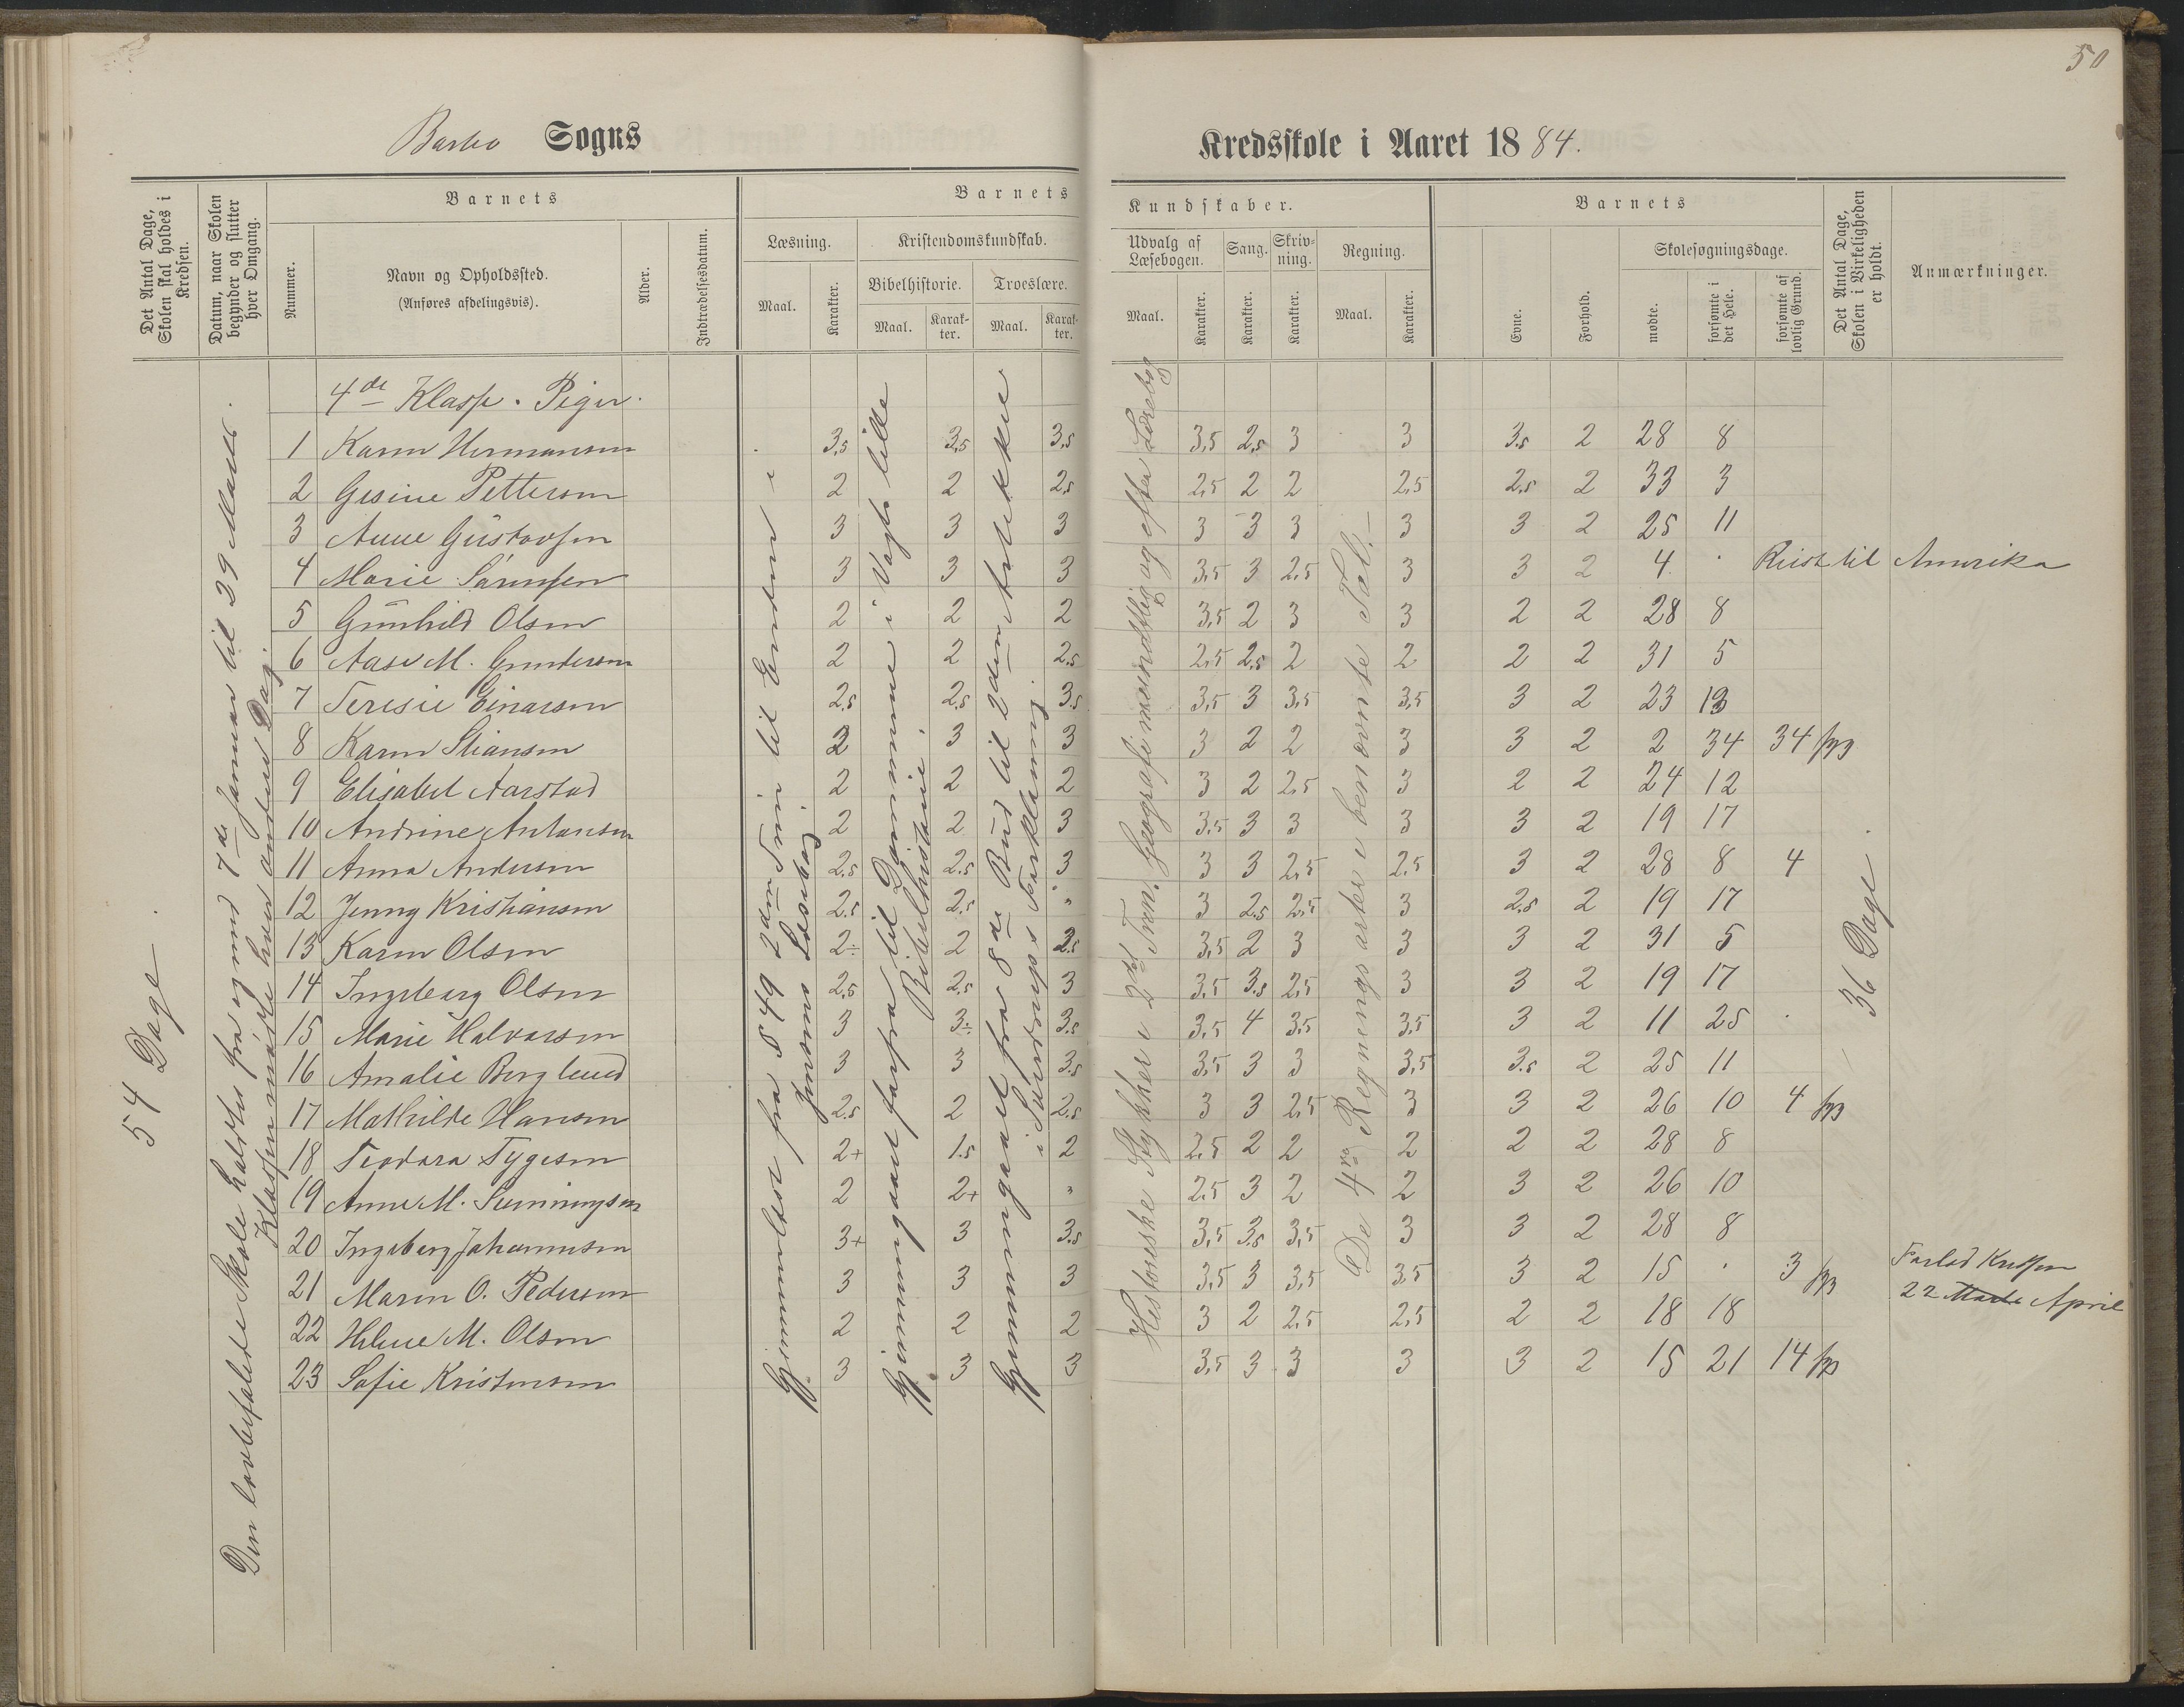 50
Barbo Sogns
Kredsskole i Aaret 1884.
Det Antal Dage, Skolen skal holdes i Kredsen.
Datum, naar Skolen begynder og slutter hver Omgang.
Barnets
Nummer.
Navn og Opholdssted.
(Anføres afdelingsvis).
Alder.
Indtrædelsesdatum.
Barnets
Kundskaber.
Læsning.
Maal.
Karakter.
Kristendomskundskab.
Bibelhistorie.
Maal.
Karakter.
Troeslære.
Maal.
Karakter.
Udvalg af Læsebogen.
Maal.
Karakter.
Sang.
Karakter.
Skrivning.
Karakter.
Regning.
Maal.
Karakter.
Barnets
Evne.
Forhold.
Skolesøgningsdage.
mødte.
forsømte i det Hele.
forsømte af lovlig Grund.
Det Antal Dage, Skolen i Virkeligheden er holdt.
Anmærkninger.
54 Dage.
Den lovbefalede Skole holdtes fra og med 7de Januar til 29 Marts.
Klassen mødte hver anden Dag.
Gjennemlæst fra S 149 2det Trin til Enden i
Jensens Læsebog
Gjennemgaaet forfra til Dommerne i Vogts lille
Bibelhistorie.
Gjennemgaaet fra 8de Bud til 2den Artikkel
i Sverdrups Forklaring.
Historiske Stykker i 2det Trin. Geografi mundtlig og efter Læsebog
De 4re Regningsarter i benævnte Tal.
36 Dage.
4de Klasse. Piger.
1 Karen Hermansen 3,5 3,5 3,5 3,5 2,5 3 3 3,5 2 28 8
2 Gesine Pettersen 2 2 2,5 2,5 2 2 2,5 2,5 2 33 3
3 Anne Gustavsen 3 3 3 3 3 3 3 3 2 25 11
4 Marie Sørensen 3 3 3 3,5 3 2,5 3 3 2 4 . Reist til Amerika
5 Gunhild Olsen 2 2 2 3,5 2 3 3 2 2 28 8
6 Aase M. Gundersen 2 2 2,5 2,5 2,5 2 2 2 2 31 5
7 Teresie Einarsen 2,5 2,5 3,5 3,5 3 3,5 3,5 3 2 23 13
8 Karen Stiansen 2 3 3 3 2 2 3 3 2 2 34 34
9 Elisabet Aarstad 2 2 2 3 2 2,5 3 2 2 24 12
10 Andrine Antonsen 2 2 3 3,5 3 3 3 3 2 19 17
11 Anna Andersen 2,5 2,5 3 3 3 2,5 2,5 3 2 28 8 4
12 Jenny Kristiansen 2,5 2,5 " 3 2,5 2,5 3 2,5 2 19 17
13 Karen Olsen 2÷ 2 2,5 3,5 2 3 3 3 2 31 5
14 Ingeborg Olsen 2,5 2,5 3 3,5 3,5 2,5 3 3 2 19 17
15 Marie Halvorsen 3 3÷ 3,5 3,5 4 3,5 3,5 3 2 11 25 .
16 Amalie Berglund 3 3 3,5 3,5 3 3 3,5 3,5 2 25 11
17 Mathilde Hansen 2,5 2 2,5 3 3 2,5 3 3 2 26 10 4
18 Teodora Tygesen 2+ 1,5 2 2,5 2 2 2 2 2 28 8
19 Anne M. 2 2+ " 2,5 3 2 2 3 2 26 10
20 Ingeborg Johannesen 3+ 3 3,5 3,5 3,5 3,5 3 3 2 28 8
21 Maren O. Pedersen 3 3 3 3,5 3 3,5 3,5 3 2 15 . 3 Forlod Kredsen
22 Marts April
22 Helene M. Olsen 2 2 2 3 2 2,5 2,5 2 2 18 18
23 Sofie Kristensen 3 3 3 3,5 3 3 3 3 2 15 21 14